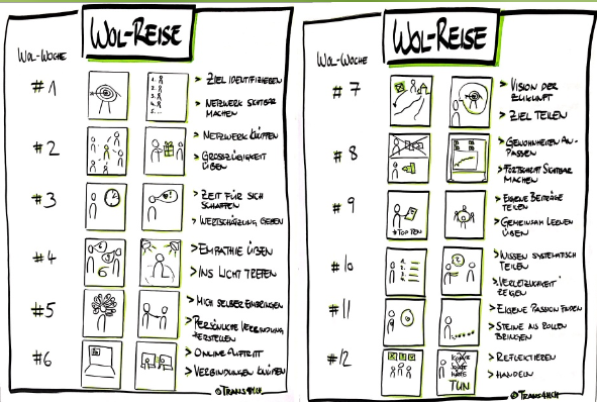 WOL-REISE
WOL-WOCHE
#1
> ZIEL IDENTIFIZIEREN
> NETZWERK SICHTBAR
MACHEN
#2
> NETZWERK KNÜPFEN
> GROSSZÜGIGKEIT
ÜBEN
#3
> ZEIT FÜR SICH
SCHAFFEN
> WERTSCHÄTZUNG GEBEN
#4
> EMPATHIE ÜBEN
> INS LICHT TRETEN
#5
> MICH SELBER EINBRINGEN
> PERSÖNLICHE VERBINDUNG
HERSTELLEN
#6
> ONLINE AUFTRITT
> VERBINDUNGEN KNÜPFEN
WOL-REISE
WOL-WOCHE
#7
> VISION DER
ZUKUNFT
> ZIEL TEILEN
#8
> GEWOHNHEITEN AN-
PASSEN
> FORTSCHRITT SICHTBAR
MACHEN
#9
#TOP TEN
> EIGENE BEITRÄGE
TEILEN
> GEMEINSAM LERNEN
ÜBEN
#10
> WISSEN SYSTEMATISCH
TEILEN
> VERLETZLICHKEIT
ZEIGEN
#11
> EIGENE PASSION FINDEN
> STEINE INS ROLLEN
BRINGEN
#12
TUN
> REFLEKTIEREN
> HANDELN